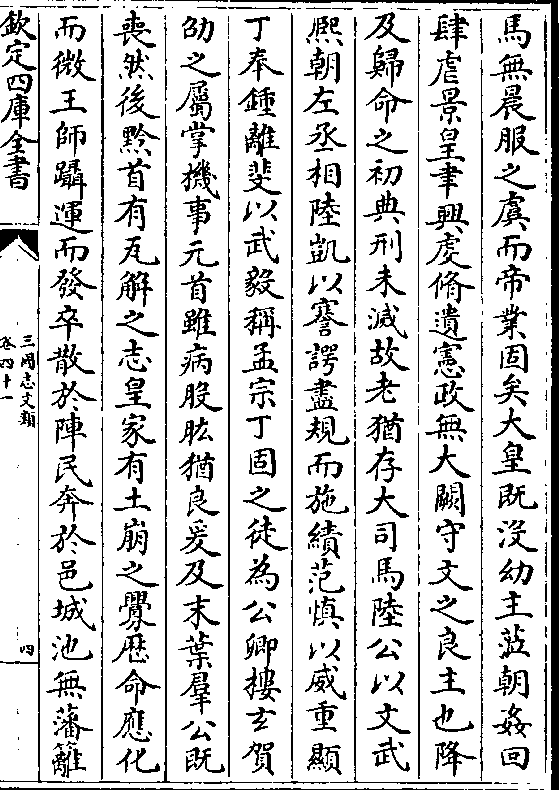 馬無晨服之虞而帝業固矣大皇既沒幼主蒞朝姦回
肆虐景皇聿興虔脩遺憲政無大闕守文之良主也降
及歸命之初典刑未滅故老猶存大司馬陸公以文武
熈朝左丞相陸凱以謇諤盡規而施績范慎以威重顯
丁奉鍾離斐以武毅稱孟宗丁固之徒為公卿樓玄賀
劭之屬掌機事元首雖病股肱猶良爰及末葉羣公既
喪然後黔首有瓦解之志皇家有土崩之釁歴命應化
而微王師躡運而發卒散於陣民奔於邑城池無藩籬
欽定四庫全書
三國志文類
卷四十一
四